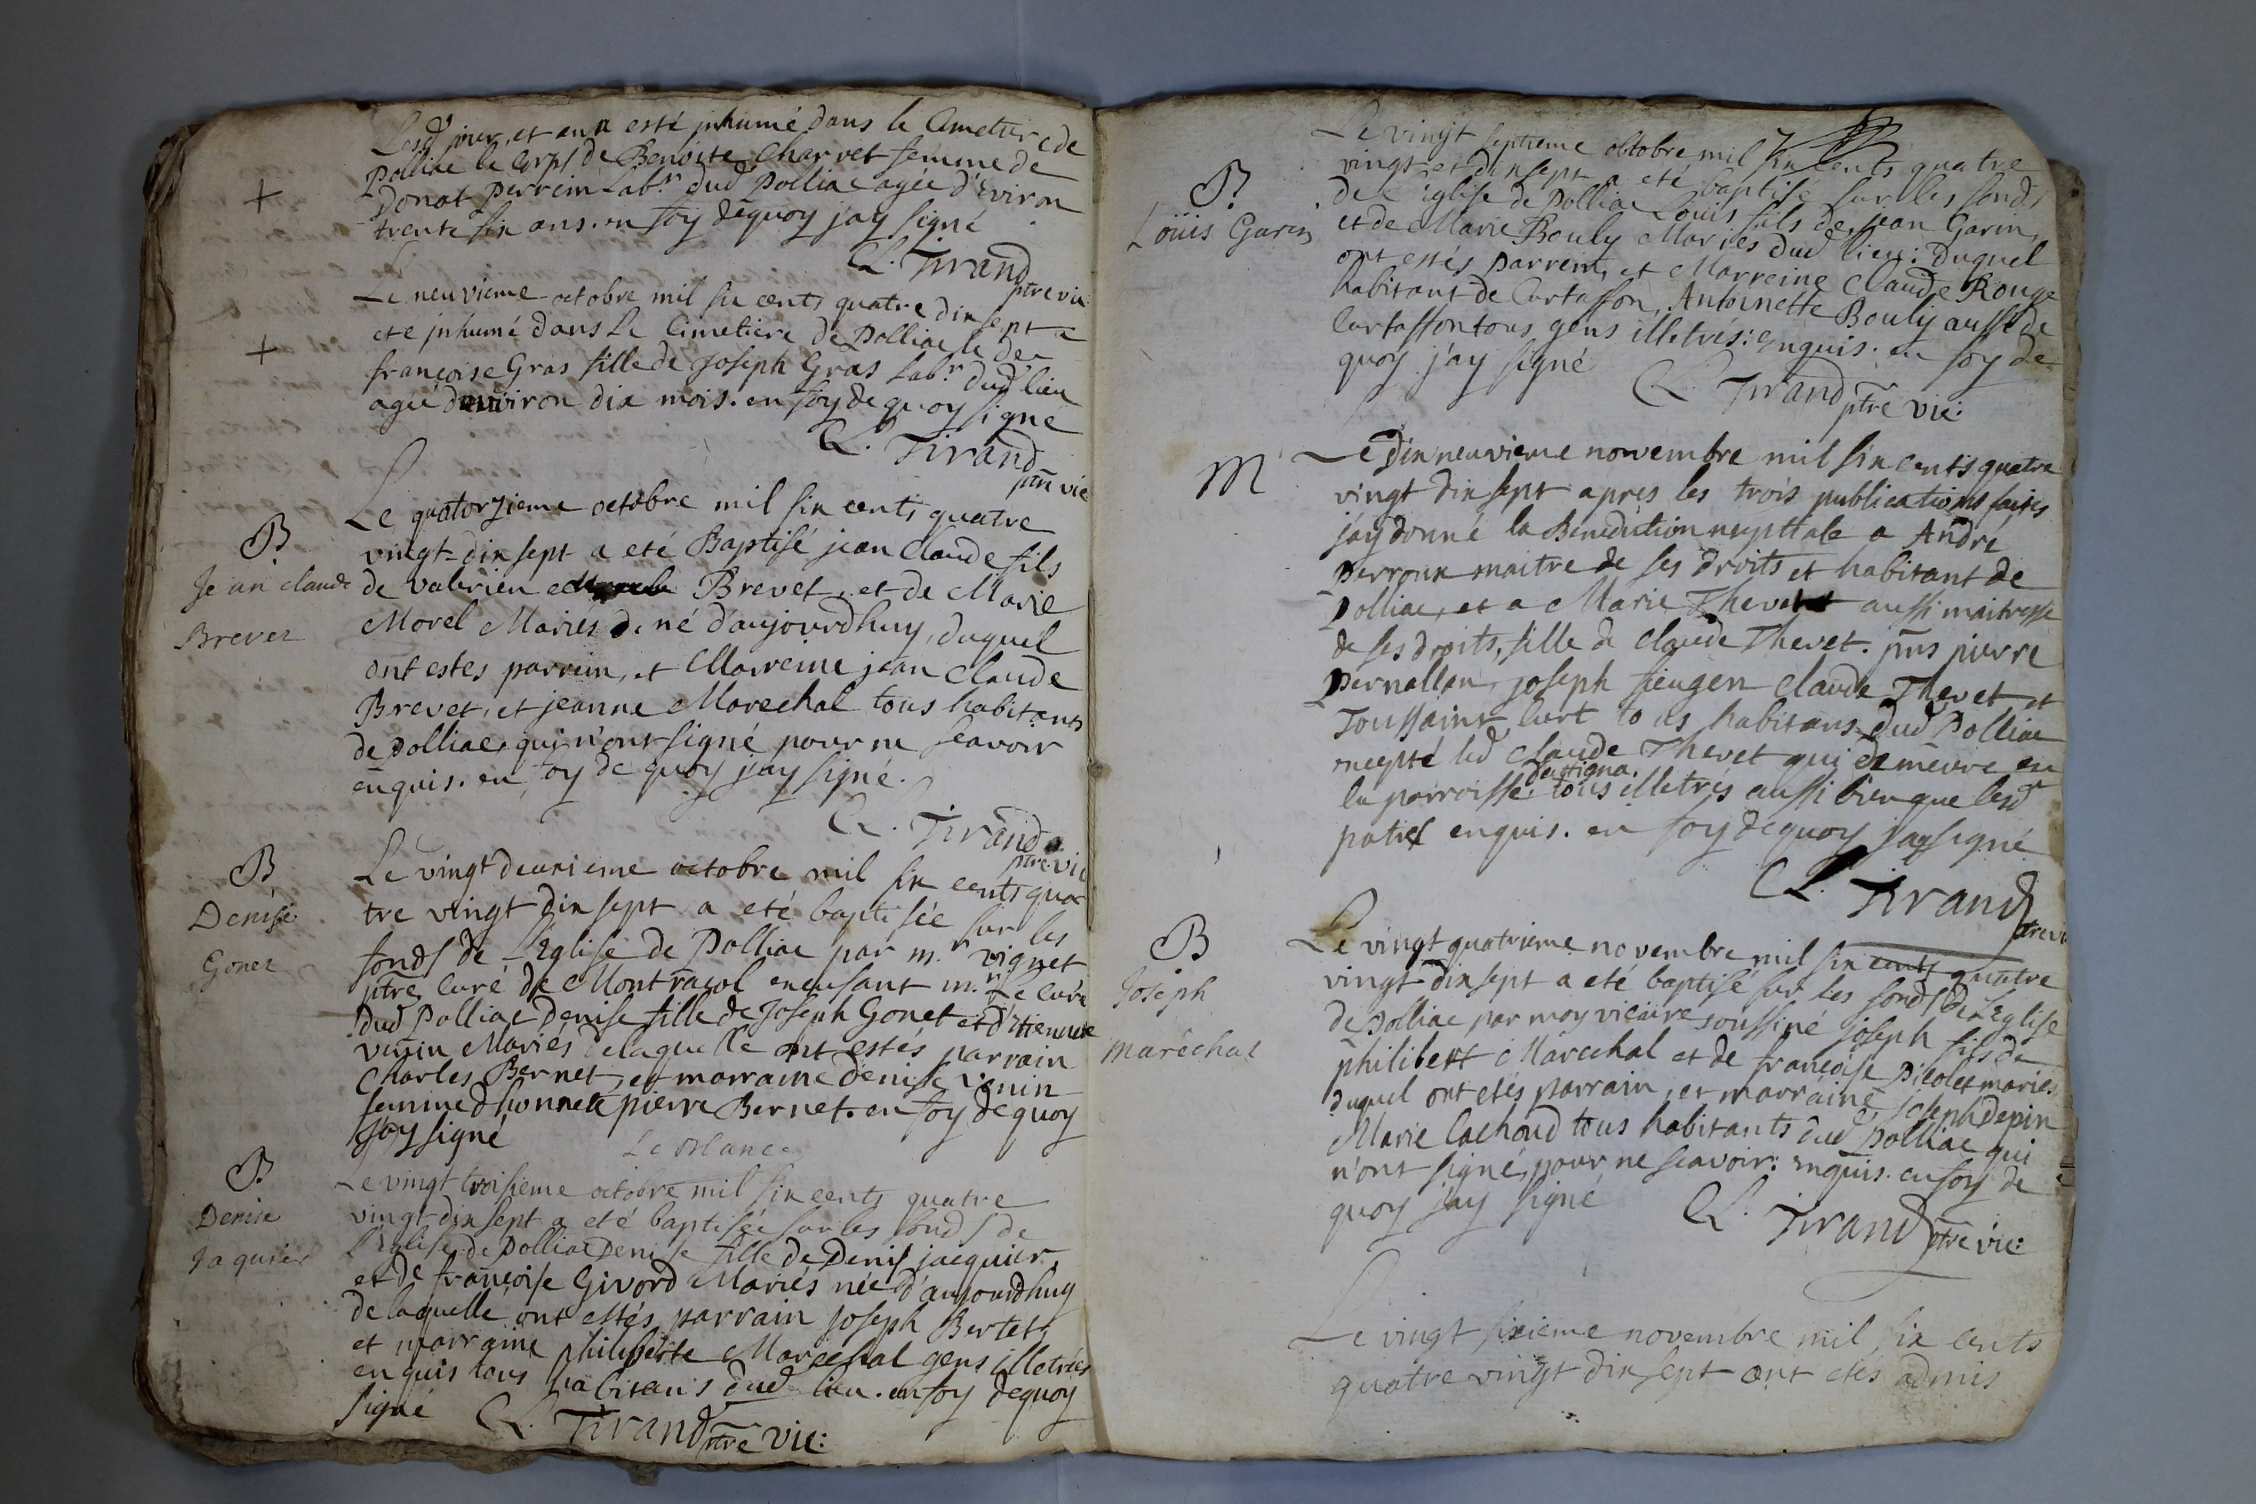 Lesd jour, et an a esté inhumé dans le Cimetiere de
Polliac le Corps de Benoite Charvet femme de
+
Donat Perrein Labr dud Polliac agée d'Eviron
trente six ans. en foy dequoy jay signé
Cl. Tirand
ptre vic
Le neuvieme octobre mil six cents quatre dix sept a
eté inhumé dans Le Cimetiere de Polliac le
+
françoise Gras fille de Joseph Gras Labr dud lieu
agée denviron dix mois. en foy de quoy signé
Cl. Tirand
ptre vic
Le quatorzieme octobre mil six cents quatre
B
vingt-dix sept a eté Baptisé jean Claude fils
Jean claude
de valerien Brevet, et de Marie
Brevet
Morel Mariés né d'aujourdhuy, duquel
ont estes parrein, et Marreine jean Claude
Brevet, et jeanne Marechal tous habitants
de Polliac, qui n'ont signé pour ne scavoir
enquis. en foy de quoy j'ay signé.
Cl. Tirand
ptre vic
B
Le vingt deuxieme octobre mil six cents qua
Denise
tre vingt dix sept a eté baptisée sur les
Gonet
fonds de L'Eglise de Polliac par m.r vignet
ptre, curé de Montracol encusant m.r Le curé
dud Polliac Denise fille de Joseph Gonet et D'etiennete
venin Mariés delaquelle ont estés parrain
Charles Bernet, et marraine denise venin
femme d'honnete pierre Bernet. en foy de quoy
jay signé
B
Le vingt troisieme octobre mil six cents quatre
Denise
vingt-dix sept a eté baptisée sur les fonds de
Jaquier
L'Eglise de Polliac Denise fille de Denis jacquier
et de françoise Givord Mariés née d'aujourdhuy
de laquelle ont estés parrain joseph Bertet,
et marraine philiberte Marechal gens illetrées
enquis tous habitans dud lieu. en foy dequoy
signé
Cl. Tirand ptre vic:
Le vingt septieme octobre mil six cents quatre
B
vingt et dix sept a eté baptisé sur les fonds
Loüis Garin
de l'Eglise de Polliac Loüis fils de jean Garin,
et de Marie Bouly Mariés dud lieu: duquel
ont estés parrein, et Marreine Claude Rouge
habitant de Curtaffon, Antoinette Bouly aussi de
Curtaffon tous gens illetrés: enquis. en foy de
quoy j'ay signé
Cl. Tirand ptre vic:
M
Le Dix neuvieme novembre mil six cents quatre
vingt dix sept apres les trois publications faites
j'ay donné la Benediction nupttale a André
Perroux maitre de ses droits et habitant de
Polliac, et a Marie Thevet aussi maitresse
de ses droits, fille de Claude Thevet. pns pierre
Pernollan, joseph fieugen Claude Thevet, et
Toussaint Curt tous habitans dud Polliac
excepté led Claude Thevet qui demeure en
la parroisse d'attigna. tous illetrés aussi bien que lesd
paties enquis. en foy dequoy jay signé
Cl. Tirand
ptre vic
B
Le vingt quatrieme novembre mil six cents quatre
Joseph
vingt dix sept a eté baptisé sur les fonds de L'Eglise
maréchal
de Polliac par moy vicaire soussiné joseph fils de
philibert Marechal et de françoise Picolet mariés
duquel ont etés parrain, et marraine, joseph depin
Marie Cachoud tous habitants dud Polliac qui
n'ont signé, pour ne scavoir: enquis. en foy de
quoy j'ay signé
Cl. Tirand ptre vic:
Le vingt sixieme novembre mil six cents
quatre vingt dix sept ont etés admis